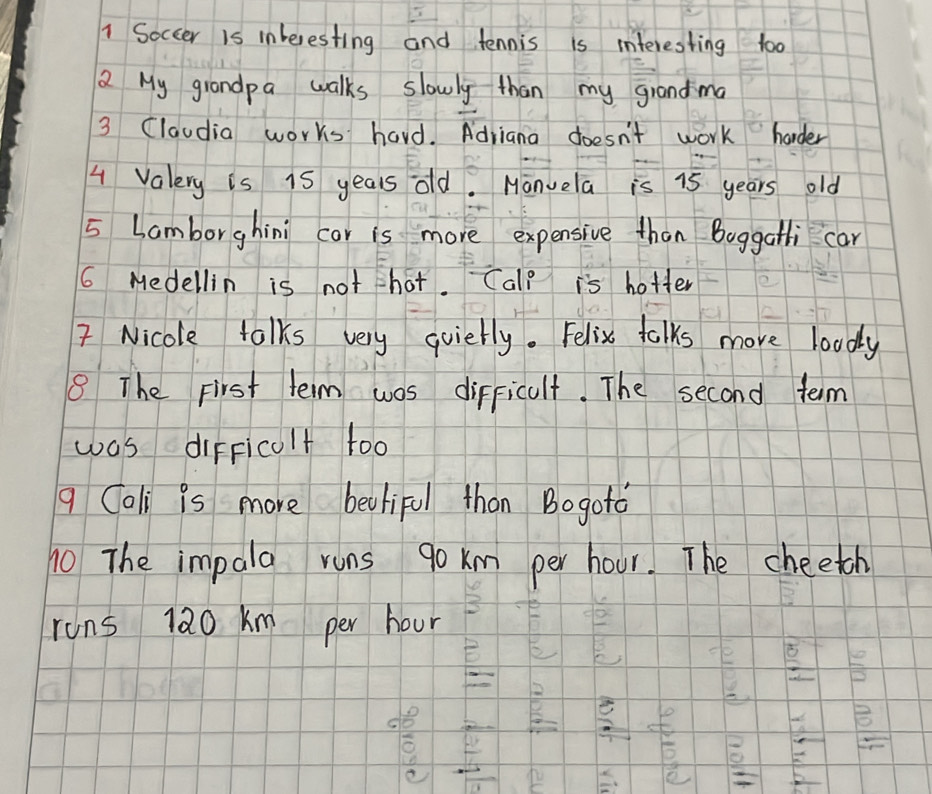 1 Soccer is interesting and tennis is interesting too
2 My grandpa walks slowly than my grandma
3 Claudia works hard. Adriana doesn't work harder
4 Valery is 15 years old. Manuela is 15 years old
5 Lamborghini car is more expensive than Buggatti car
6 Medellin is not hot. Cali is hotter
7 Nicole talks very quietly. Felix talks more loudly
8 The First term was difficult. The second term
was difficult too
9 Cali is more beutiful than Bogotá
10 The impala runs 90 km per hour. The cheetah
runs 120 km per hour